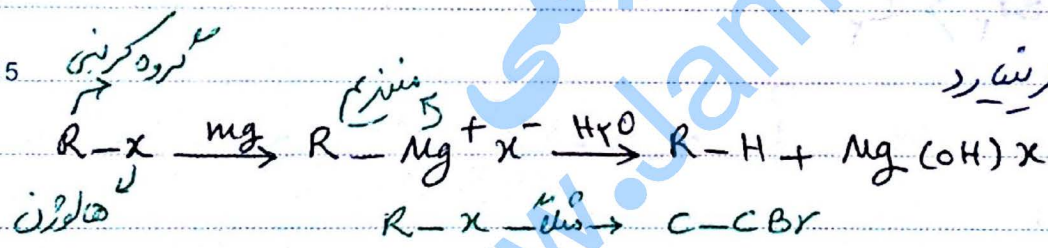 5 گروه کربنی منیزیم
R-x mg→ R-Mg⁺x⁻ H₂O→ R-H + Mg(OH)x
هالوژن R-x مثلاً→ C-CBr